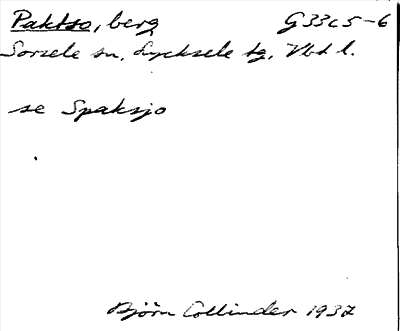 Paktso, berg G33c5-6
Sorsele sn, Lycksele tg, Vbt l.
se Spaksjo
Björn Collinder 1937